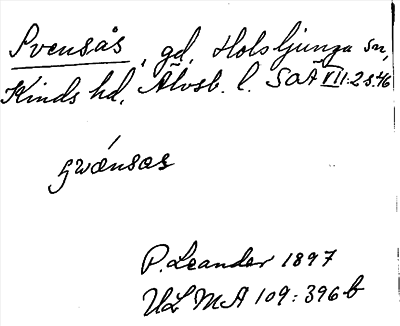 Svensås, gd, Holsljunga sn,
Kinds hd, Älvsb. l. SOÄ VII:2 s. 46
swǽnsas
P. Leander 1897
ULMA 109:396 b